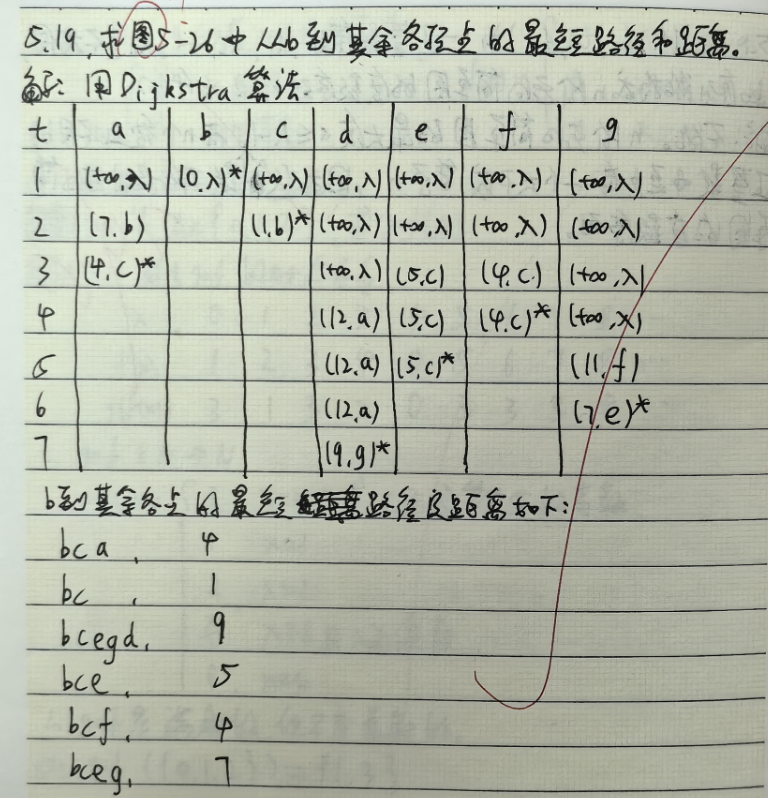 5.19 求图5-26中从b到其余各顶点的最短路径和距离。
解: 用Dijkstra算法.
t a b c d e f g
1 (+∞,λ) (0,λ)* (+∞,λ) (+∞,λ) (+∞,λ) (+∞,λ) (+∞,λ)
2 (7,b) (1,b)* (+∞,λ) (+∞,λ) (+∞,λ) (+∞,λ)
3 (4,c)* (+∞,λ) (5,c) (4,c) (+∞,λ)
4 (12,a) (5,c) (4,c)* (+∞,λ)
5 (12,a) (5,c)* (11,f)
6 (12,a) (7,e)*
7 (9,g)*
b到其余各点的最短路径及距离如下:
bca, 4
bc, 1
bcegd, 9
bce, 5
bcf, 4
bceg, 7